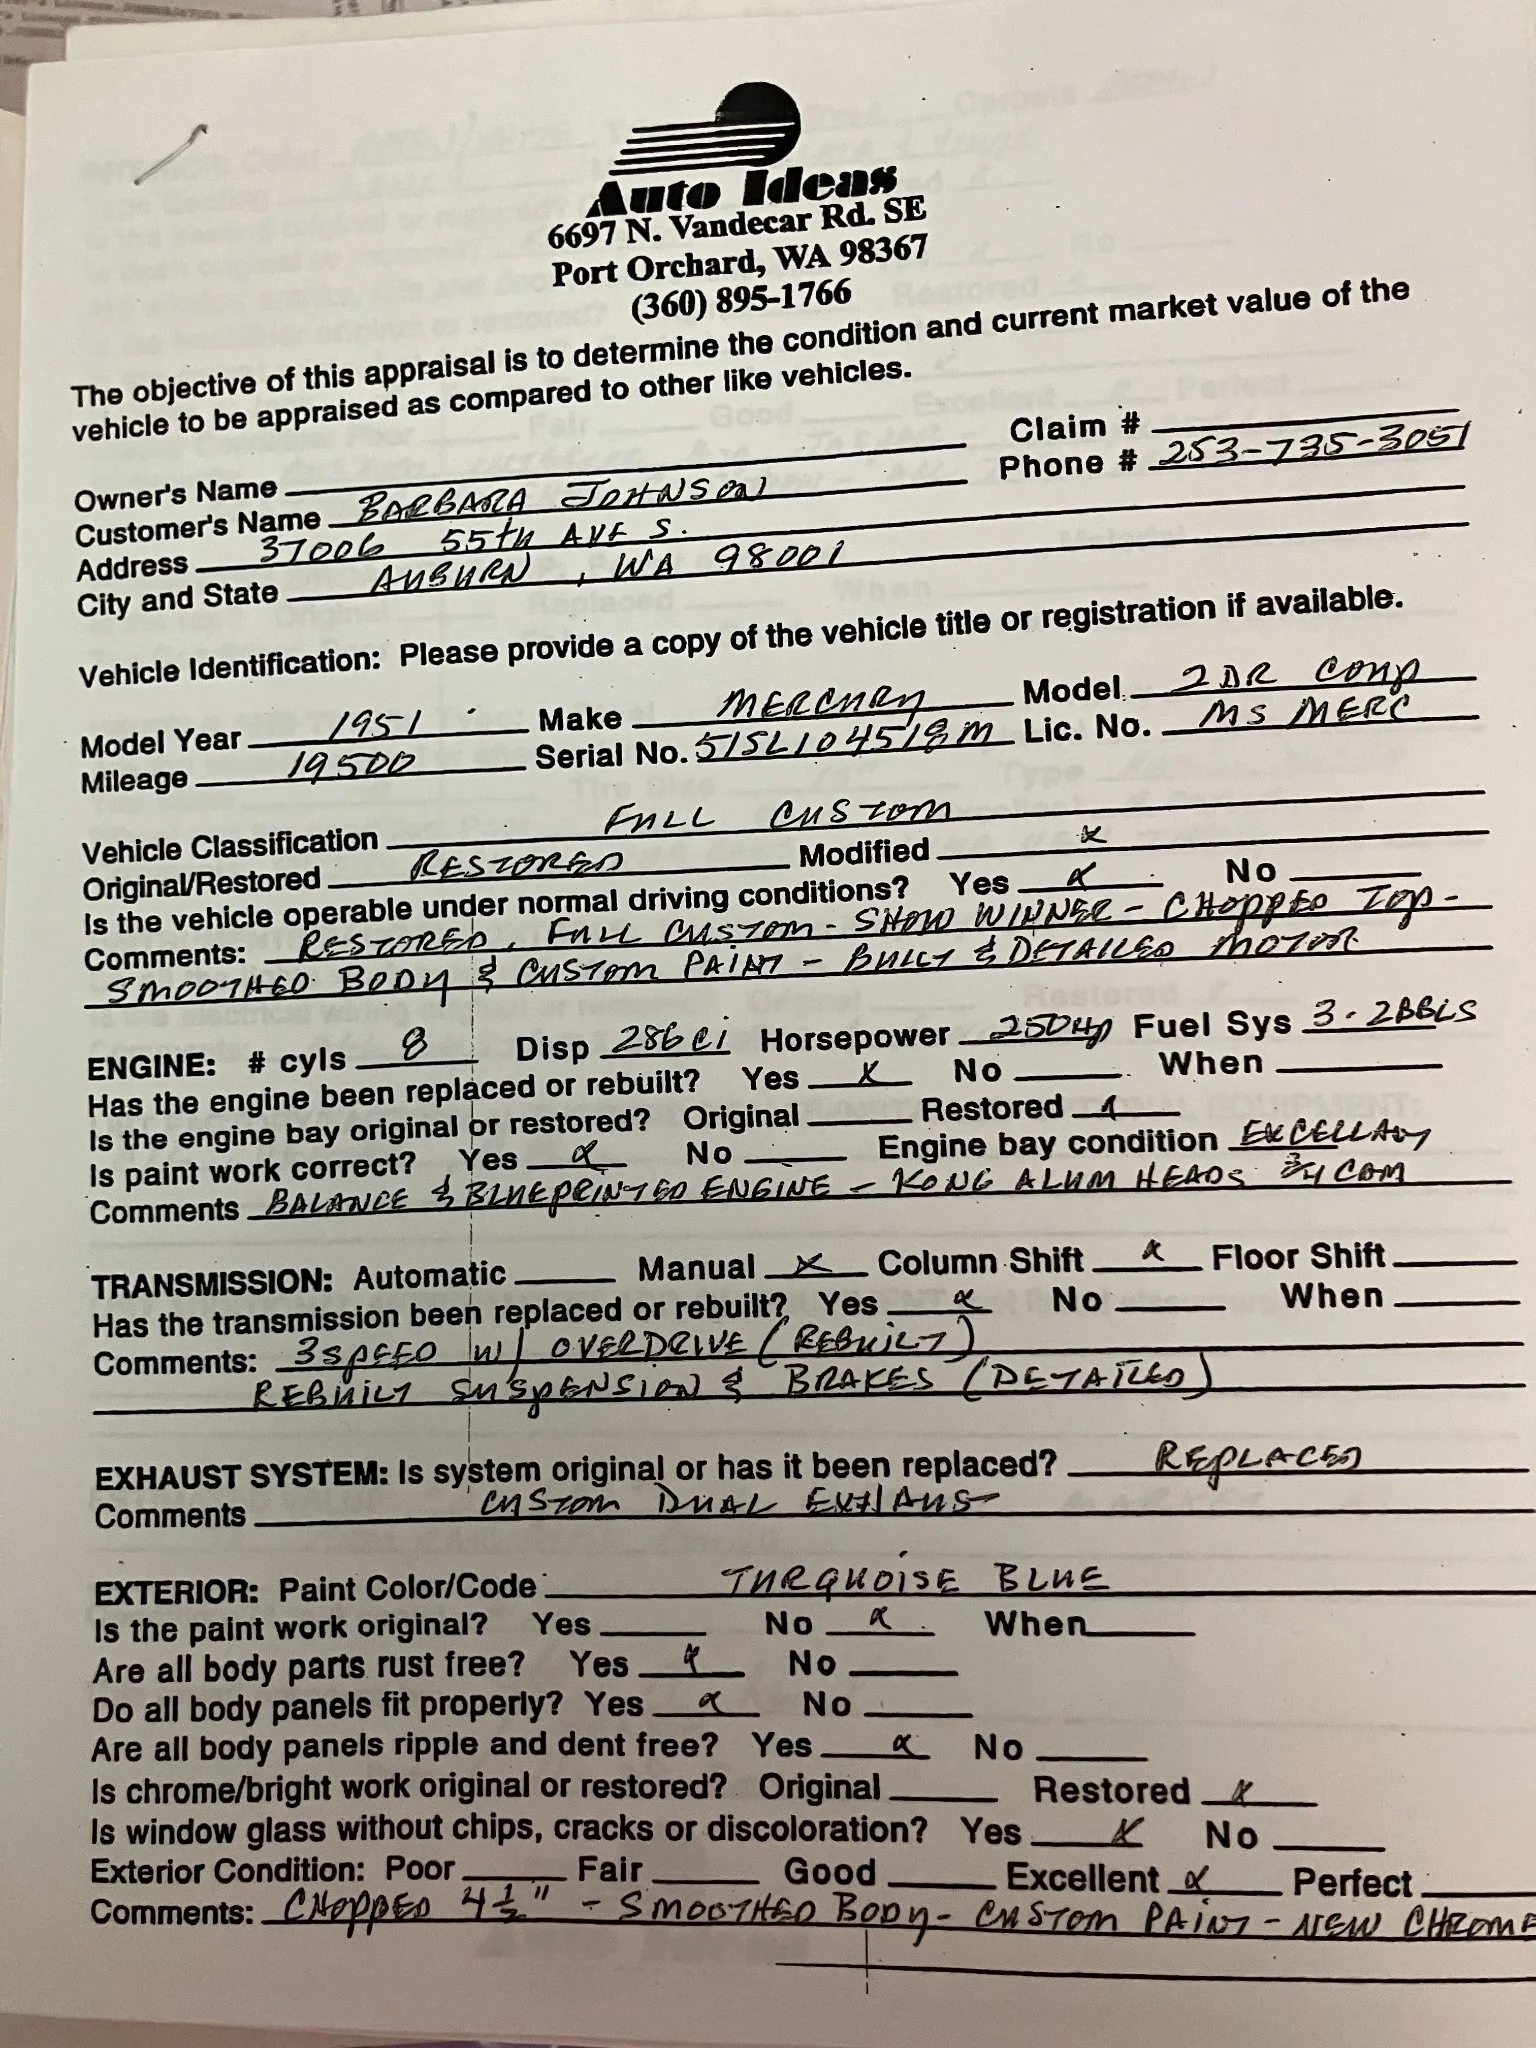 Auto Ideas
6697 N. Vandecar Rd. SE
Port Orchard, WA 98367
(360) 895-1766
The objective of this appraisal is to determine the condition and current market value of the
vehicle to be appraised as compared to other like vehicles.
Owner's Name Claim #
Customer's Name BARBARA JOHNSON Phone # 253-735-3051
Address 37006 55th AVE S.
City and State AUBURN, WA 98001
Vehicle Identification: Please provide a copy of the vehicle title or registration if available.
Model Year 1951 Make MERCURY Model 2 DR COUP
Mileage 19500 Serial No. 51SL104518M Lic. No. MS MERC
Vehicle Classification FULL CUSTOM
Original/Restored RESTORED Modified x
Is the vehicle operable under normal driving conditions? Yes x No
Comments: RESTORED, FULL CUSTOM - SHOW WINNER - CHOPPED TOP -
SMOOTHED BODY & CUSTOM PAINT - BUILT & DETAILED MOTOR
ENGINE: # cyls 8 Disp 286 ci Horsepower 250 hp Fuel Sys 3 - 2BBLS
Has the engine been replaced or rebuilt? Yes x No When
Is the engine bay original or restored? Original Restored x
Is paint work correct? Yes x No Engine bay condition EXCELLANT
Comments BALANCE & BLUEPRINTED ENGINE - KONG ALUM HEADS 3/4 CAM
TRANSMISSION: Automatic Manual x Column Shift x Floor Shift
Has the transmission been replaced or rebuilt? Yes x No When
Comments: 3 SPEED W/ OVERDRIVE (REBUILT)
REBUILT SUSPENSION & BRAKES (DETAILED)
EXHAUST SYSTEM: Is system original or has it been replaced? REPLACED
Comments CUSTOM DUAL EXHAUST
EXTERIOR: Paint Color/Code TURQUOISE BLUE
Is the paint work original? Yes No x When
Are all body parts rust free? Yes x No
Do all body panels fit properly? Yes x No
Are all body panels ripple and dent free? Yes x No
Is chrome/bright work original or restored? Original Restored x
Is window glass without chips, cracks or discoloration? Yes x No
Exterior Condition: Poor Fair Good Excellent x Perfect
Comments: CHOPPED 4 1/2" - SMOOTHED BODY - CUSTOM PAINT - NEW CHROME